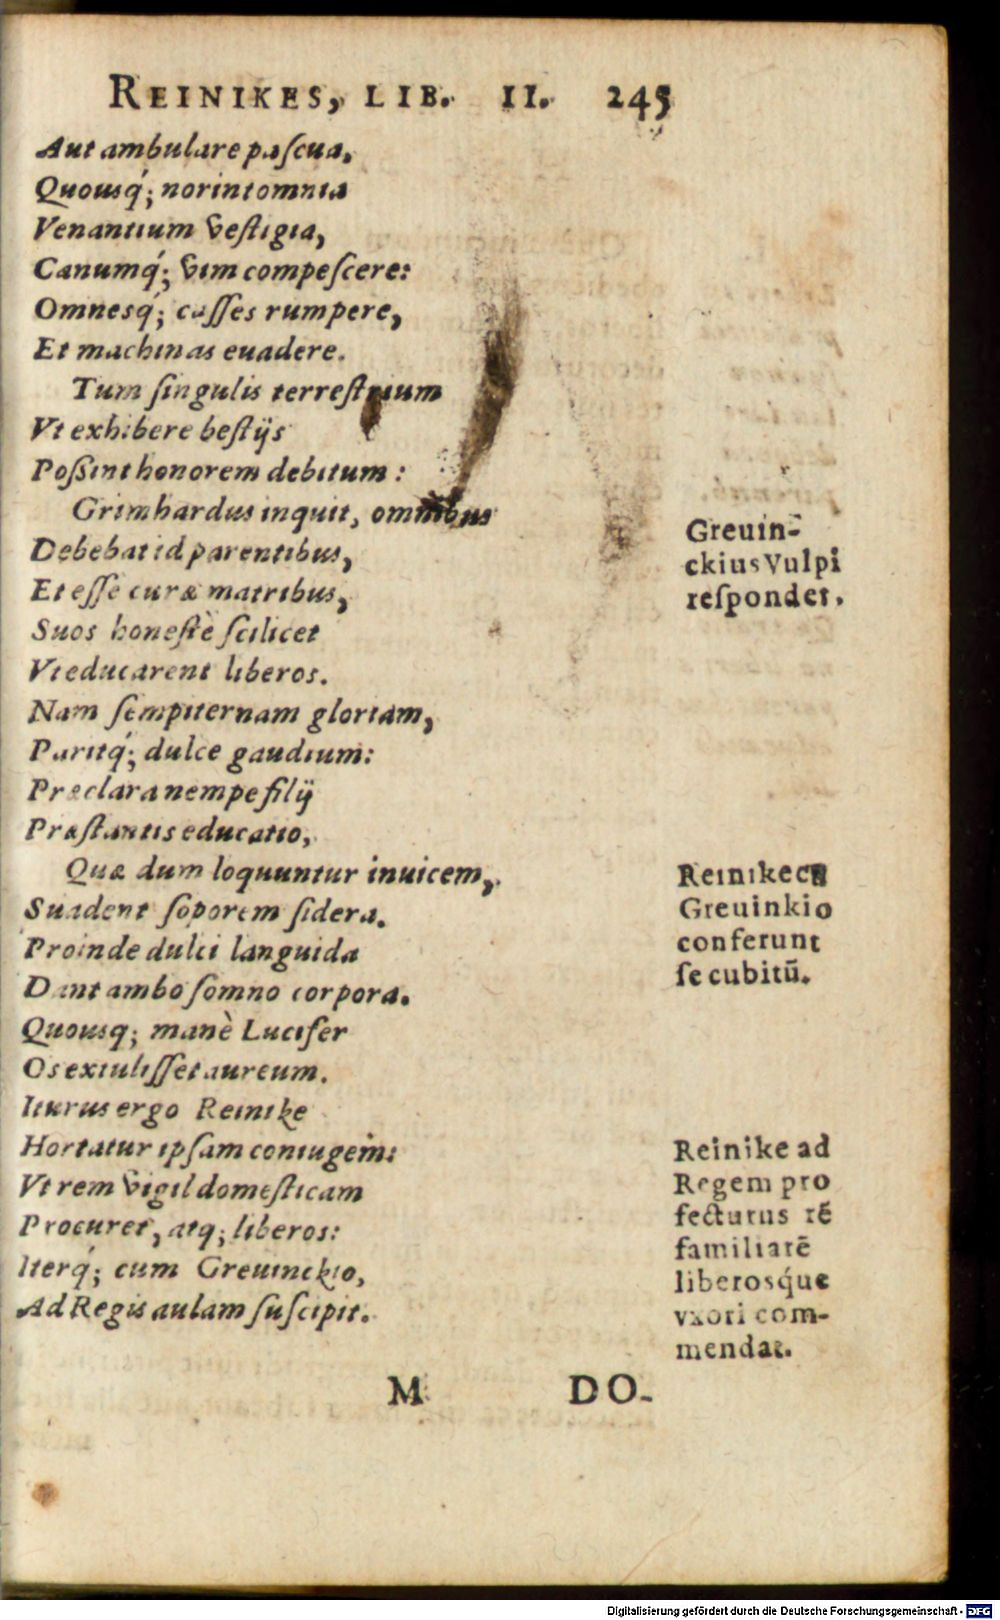 REINIKES, LIB. II. 245
Aut ambulare paſcua,
Quouſq́; norint omnia
Venantium veſtigia,
Canumq́; vim compeſcere:
Omnesq́; caſſes rumpere,
Et machinas euadere.
Tum ſingulis terreſtrium
Vt exhibere beſtijs
Poſſint honorem debitum:
Grimhardus inquit, omnibus
Debebat id parentibus,
Et eſſe curæ matribus,
Suos honeſtè ſcilicet
Vt educarent liberos.
Nam ſempiternam gloriam,
Paritq́; dulce gaudium:
Præclara nempe filij
Præſtantis educatio,
Quæ dum loquuntur inuicem,
Suadent ſoporem ſidera.
Proinde dulci languida
Dant ambo ſomno corpora.
Quouſq; manè Lucifer
Os extuliſſet aureum.
Iturus ergo Reinike
Hortatur ipſam coniugem:
Vt rem vigil domeſticam
Procuret, atq; liberos:
Iterq́; cum Greuinckio,
Ad Regis aulam ſuſcipit.
Greuin-
ckius Vulpi
reſpondet.
Reinike cũ
Greuinkio
conferunt
ſe cubitũ.
Reinike ad
Regem pro
fecturus rẽ
familiarẽ
liberosq́ue
vxori com-
mendat.
M DO-
Digitalisierung gefördert durch die Deutsche Forschungsgemeinschaft - DFG